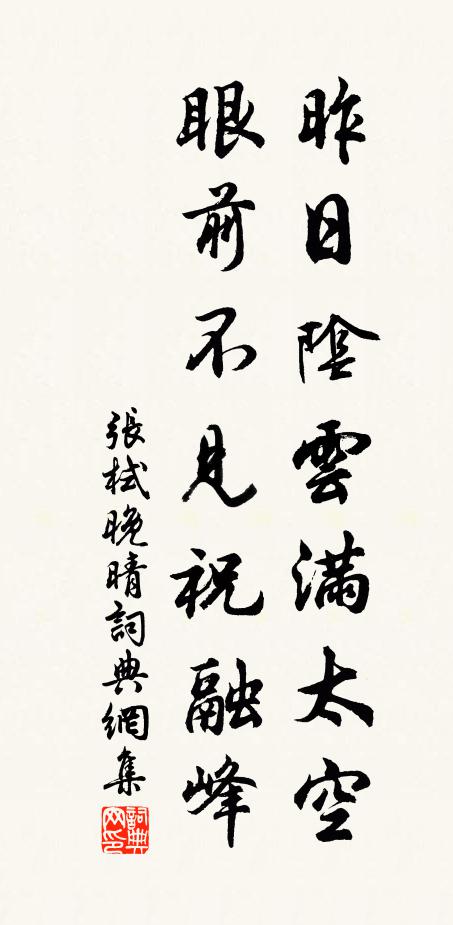 昨日陰雲滿太空
眼前不見祝融峰
張栻晚晴詞典網集
詞典網印